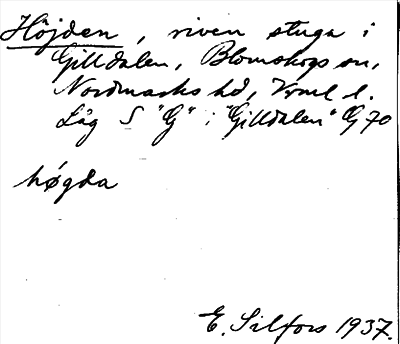 Höjden, riven stuga i
Gilldalen, Blomskogs sn,
Nordmarks hd, Vrml l.
Låg S "G" i "Gilldalen" G 70
høgda
E. Silfors 1937.